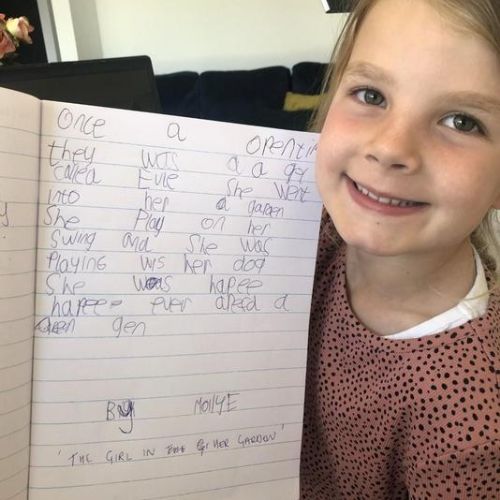 Once a opentin
they was a a gey
called Evie She went
into her a garden
She Play on her
Swing and She was
Playing wis her dog
She was hapee
hapee ever aheed a
gen
By Mollye
'THE GIRL IN HER GARDON'